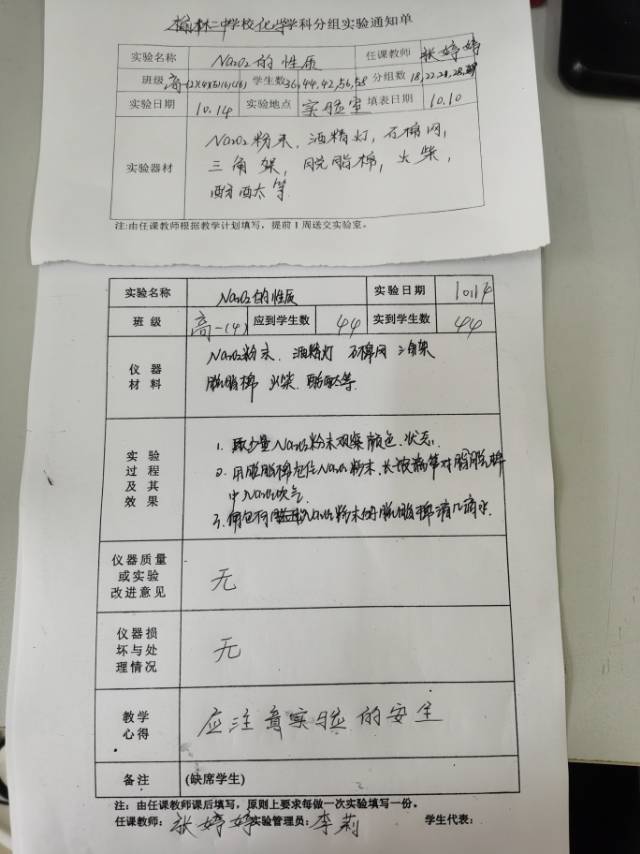 榆林二中学校化学学科分组实验通知单
实验名称 Na₂O₂的性质 任课教师 张婷婷
班级 高一(2)(4)(5)(6)(16) 学生数 36,44,42,56,58 分组数 18,22,21,28,
实验日期 10.14 实验地点 实验室 填表日期 10.10
实验器材
Na₂O₂粉末,酒精灯,石棉网,
三角架,脱脂棉,火柴,
酚酞等
注:由任课教师根据教学计划填写,提前1周送交实验室。
实验名称 Na₂O₂的性质 实验日期 10.14
班级 高一(4) 应到学生数 44 实到学生数 44
仪器
材料
Na₂O₂粉末、酒精灯 石棉网 三角架
脱脂棉 火柴、酚酞等
实验
过程
及其
效果
1. 取少量Na₂O₂粉末观察颜色、状态
2. 用脱脂棉包住Na₂O₂粉末,长玻璃管对脱脂棉
中Na₂O₂吹气
3. 用包有Na₂O₂粉末的脱脂棉滴几滴水
仪器质量
或实验
改进意见
无
仪器损
坏与处
理情况
无
教学
心得
应注意实验的安全
备注 (缺席学生)
注:由任课教师课后填写,原则上要求每做一次实验填写一份。
任课教师:张婷婷 实验管理员:李莉 学生代表: